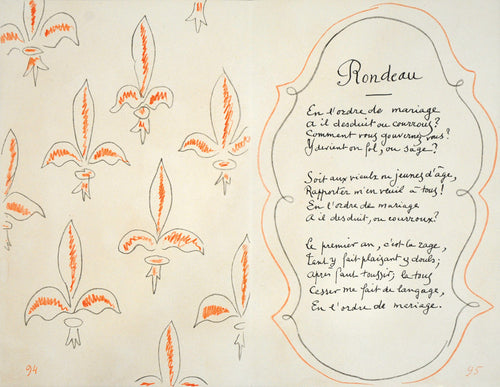 94
Rondeau
En l'ordre de mariage
A il desduit ou courroux?
Comment vous gouvernez vous?
Y devient on fol, ou sage?
Soit aux vieulx ou jeunes d'âge,
Rapporter m'en veuil à tous!
En l'ordre de mariage
A il desduit, ou courroux?
Le premier an, c'est la rage,
Tant y fait plaisant et douls;
Après faut toussir; la tous
Cesser me fait de langage,
En l'ordre de mariage.
95